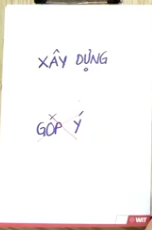 XÂY DỰNG
GÓP Ý
WIT